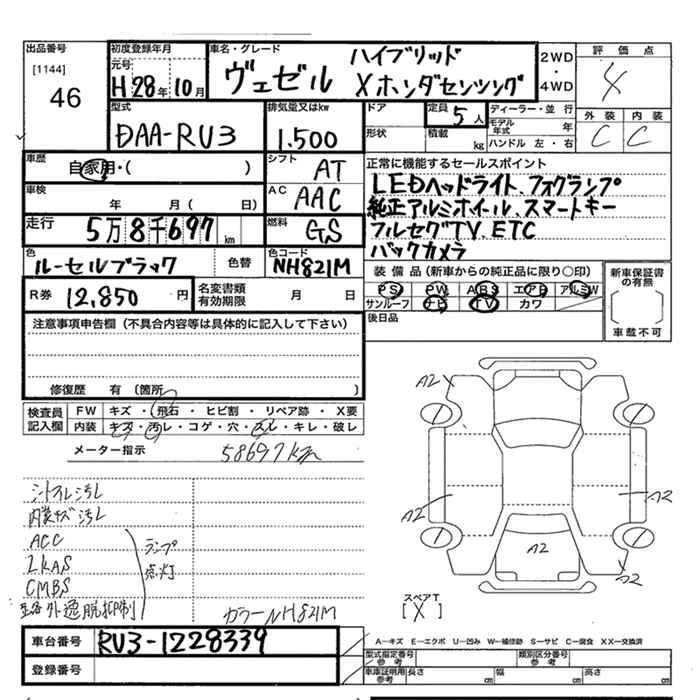 出品番号
[1144]
46
初度登録年月
元号
H 28年 10月
車名・グレード
ハイブリッド
ヴェゼル Xホンダセンシング
2WD
・
4WD
評価点
4
外装 内装
C C
型式
DAA-RU3
排気量又はkw
1.500
ドア
形状
定員
5人
積載
kg
ディーラー・並行
モデル年式
年
ハンドル 左・右
車歴
自家用・( )
シフト
AT
車検
年 月( 日)
AC
AAC
走行
5万8千697km
燃料
GS
色
ルーセルブラック
色替
色コード
NH821M
R券
12,850円
名変書類
有効期限
月 日
正常に機能するセールスポイント
LEDヘッドライト、フォグランプ
純正アルミホイール、スマートキー
フルセグTV、ETC
バックカメラ
装備品(新車からの純正品に限り○印)
PS PW ABS エアB アルミW
サンルーフ ナビ TV カワ
後日品
新車保証書
の有無
車載不可
注意事項申告欄(不具合内容等は具体的に記入して下さい)
修復歴 有〔箇所 〕
検査員
記入欄
FW キズ・飛石・ヒビ割・リペア跡・X要
内装 キズ・汚レ・コゲ・穴・スレ・キレ・破レ
メーター指示
58697km
シートスレ汚レ
内装キズ汚レ
ACC
LKAS
CMBS
路外逸脱抑制
ランプ
点灯
カラーNH821M
A2
A2
A2
A2
A2
スペアT
[X]
A―キズ E―エクボ U―凹み W―補修跡 S―サビ C―腐食 XX―交換済
車台番号
RU3-1228339
登録番号
型式指定番号
参考
類別区分番号
参考
車庫証明用
参考
長さ
cm
幅
cm
高さ
cm